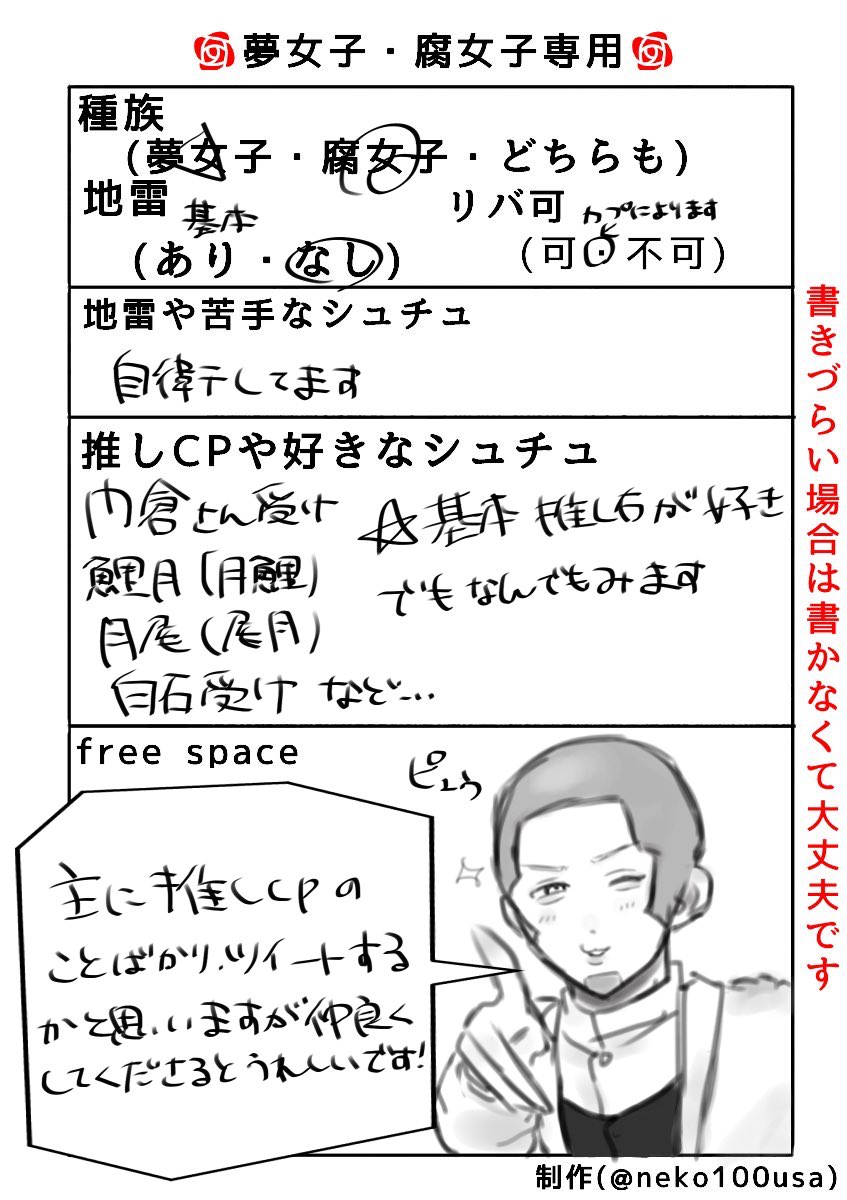 夢女子・腐女子専用
種族
(夢女子・腐女子・どちらも)
地雷 基本
(あり・なし)
リバ可 カプによります
(可・不可)
地雷や苦手なシュチュ
自衛してます
推しCPや好きなシュチュ
門倉さん受け
鯉月(月鯉)
月尾(尾月)
白石受け など…
☆基本 推し方が好き
でもなんでもみます
書きづらい場合は書かなくて大丈夫です
free space
ピュウ
主に推しCPの
ことばかりツイートする
かと思いますが仲良く
してくださるとうれしいです!
制作(@neko100usa)